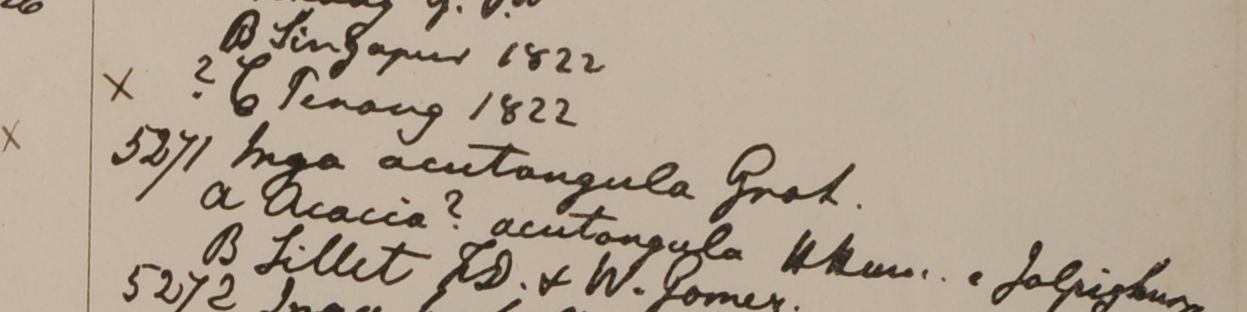 B Singapur 1822
x ? C Penang 1822
x
5271 Inga acutangula Grah.
a Acacia? acutangula Jalpighury
B Sillet F.D. & W. Gomez.
5272 Inga